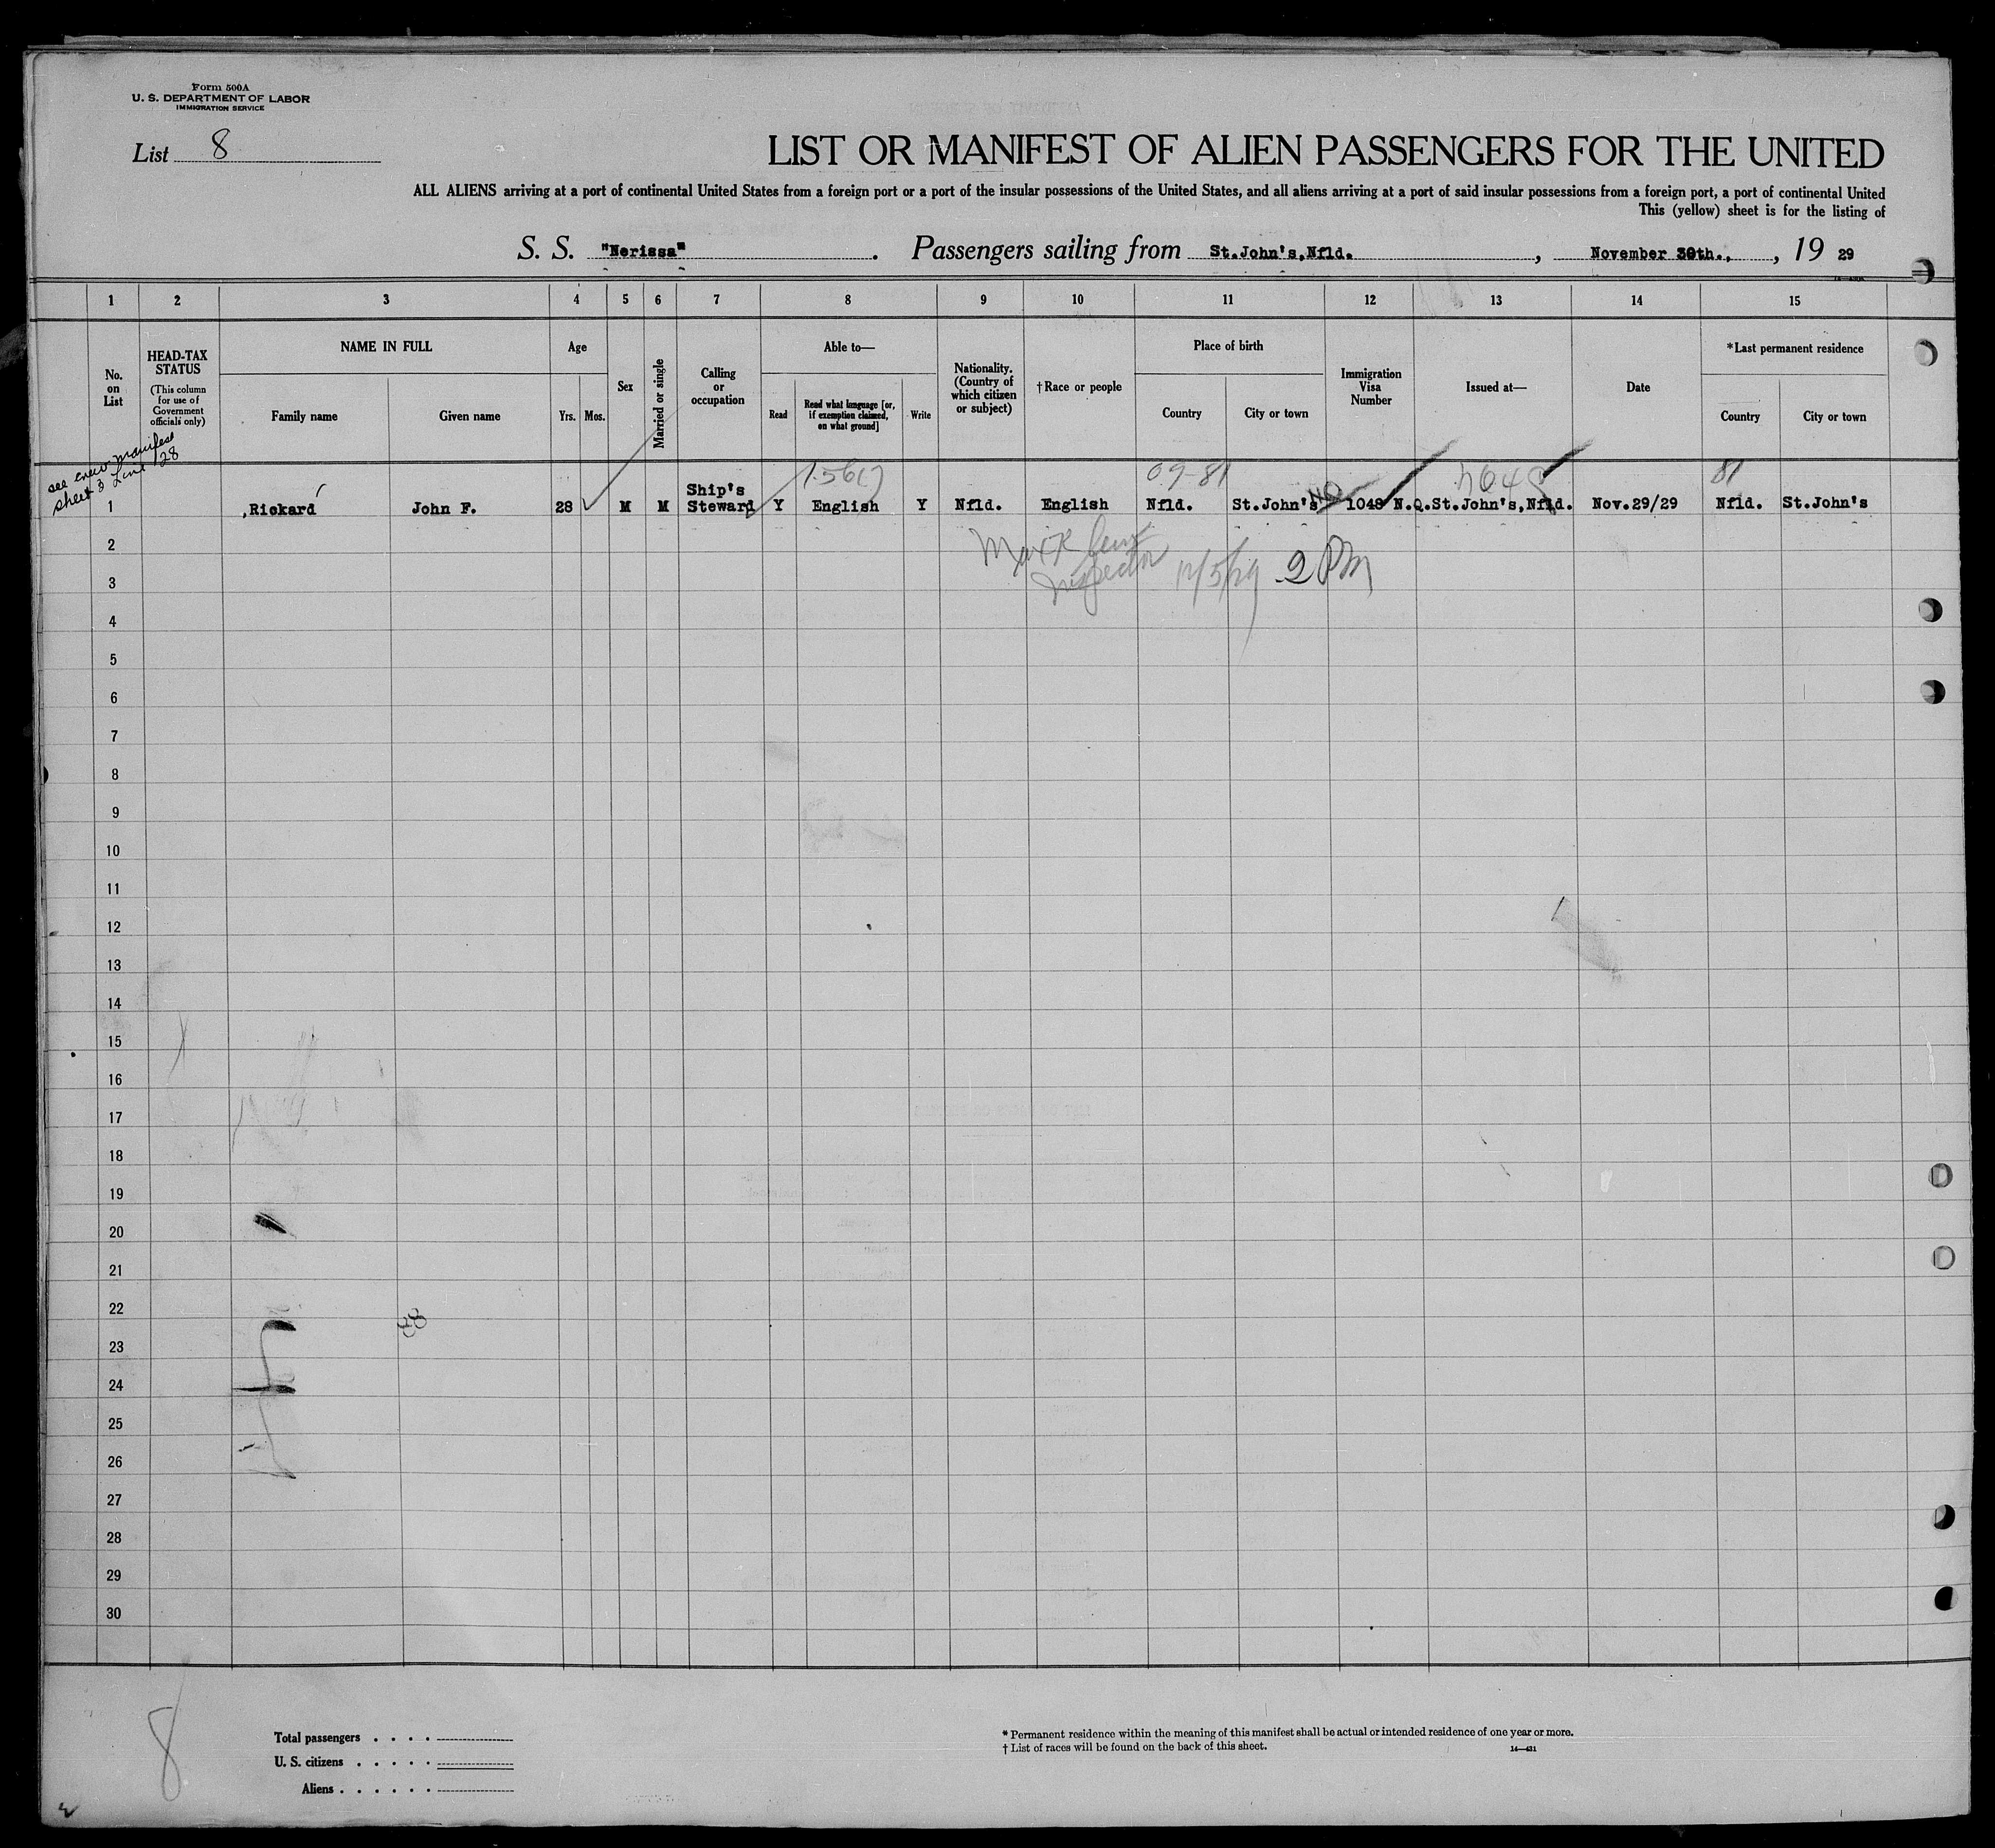 Form 500A
U. S. DEPARTMENT OF LABOR
IMMIGRATION SERVICE
List 8
LIST OR MANIFEST OF ALIEN PASSENGERS FOR THE UNITED
ALL ALIENS arriving at a port of continental United States from a foreign port or a port of the insular possessions of the United States, and all aliens arriving at a port of said insular possessions from a foreign port, a port of continental United
This (yellow) sheet is for the listing of
S. S. "Nerissa" . Passengers sailing from St.John's,Nfld. , November 30th., , 19 29
1 2 3 4 5 6 7 8 9 10 11 12 13 14 15
No. on List
HEAD-TAX STATUS
(This column for use of Government officials only)
NAME IN FULL
Family name
Given name
Age
Yrs. Mos.
Sex
Married or single
Calling or occupation
Able to—
Read
Read what language [or, if exemption claimed, on what ground]
Write
Nationality. (Country of which citizen or subject)
†Race or people
Place of birth
Country
City or town
Immigration Visa Number
Issued at—
Date
*Last permanent residence
Country
City or town
see crew manifest
sheet 3 Line 28
09-81
81
1 Rickard John F. 28 M M Ship's Steward Y English Y Nfld. English Nfld. St.John's 1048 N.Q.St.John's,Nfld. Nov.29/29 Nfld. St.John's
2
Inspector 12/5/29 2 PM
3
4
5
6
7
8
9
10
11
12
13
14
15
16
17
18
19
20
21
22
23
24
25
26
27
28
29
30
8
Total passengers . . . .
U. S. citizens . . . . .
Aliens . . . . . .
* Permanent residence within the meaning of this manifest shall be actual or intended residence of one year or more.
† List of races will be found on the back of this sheet.
14—431